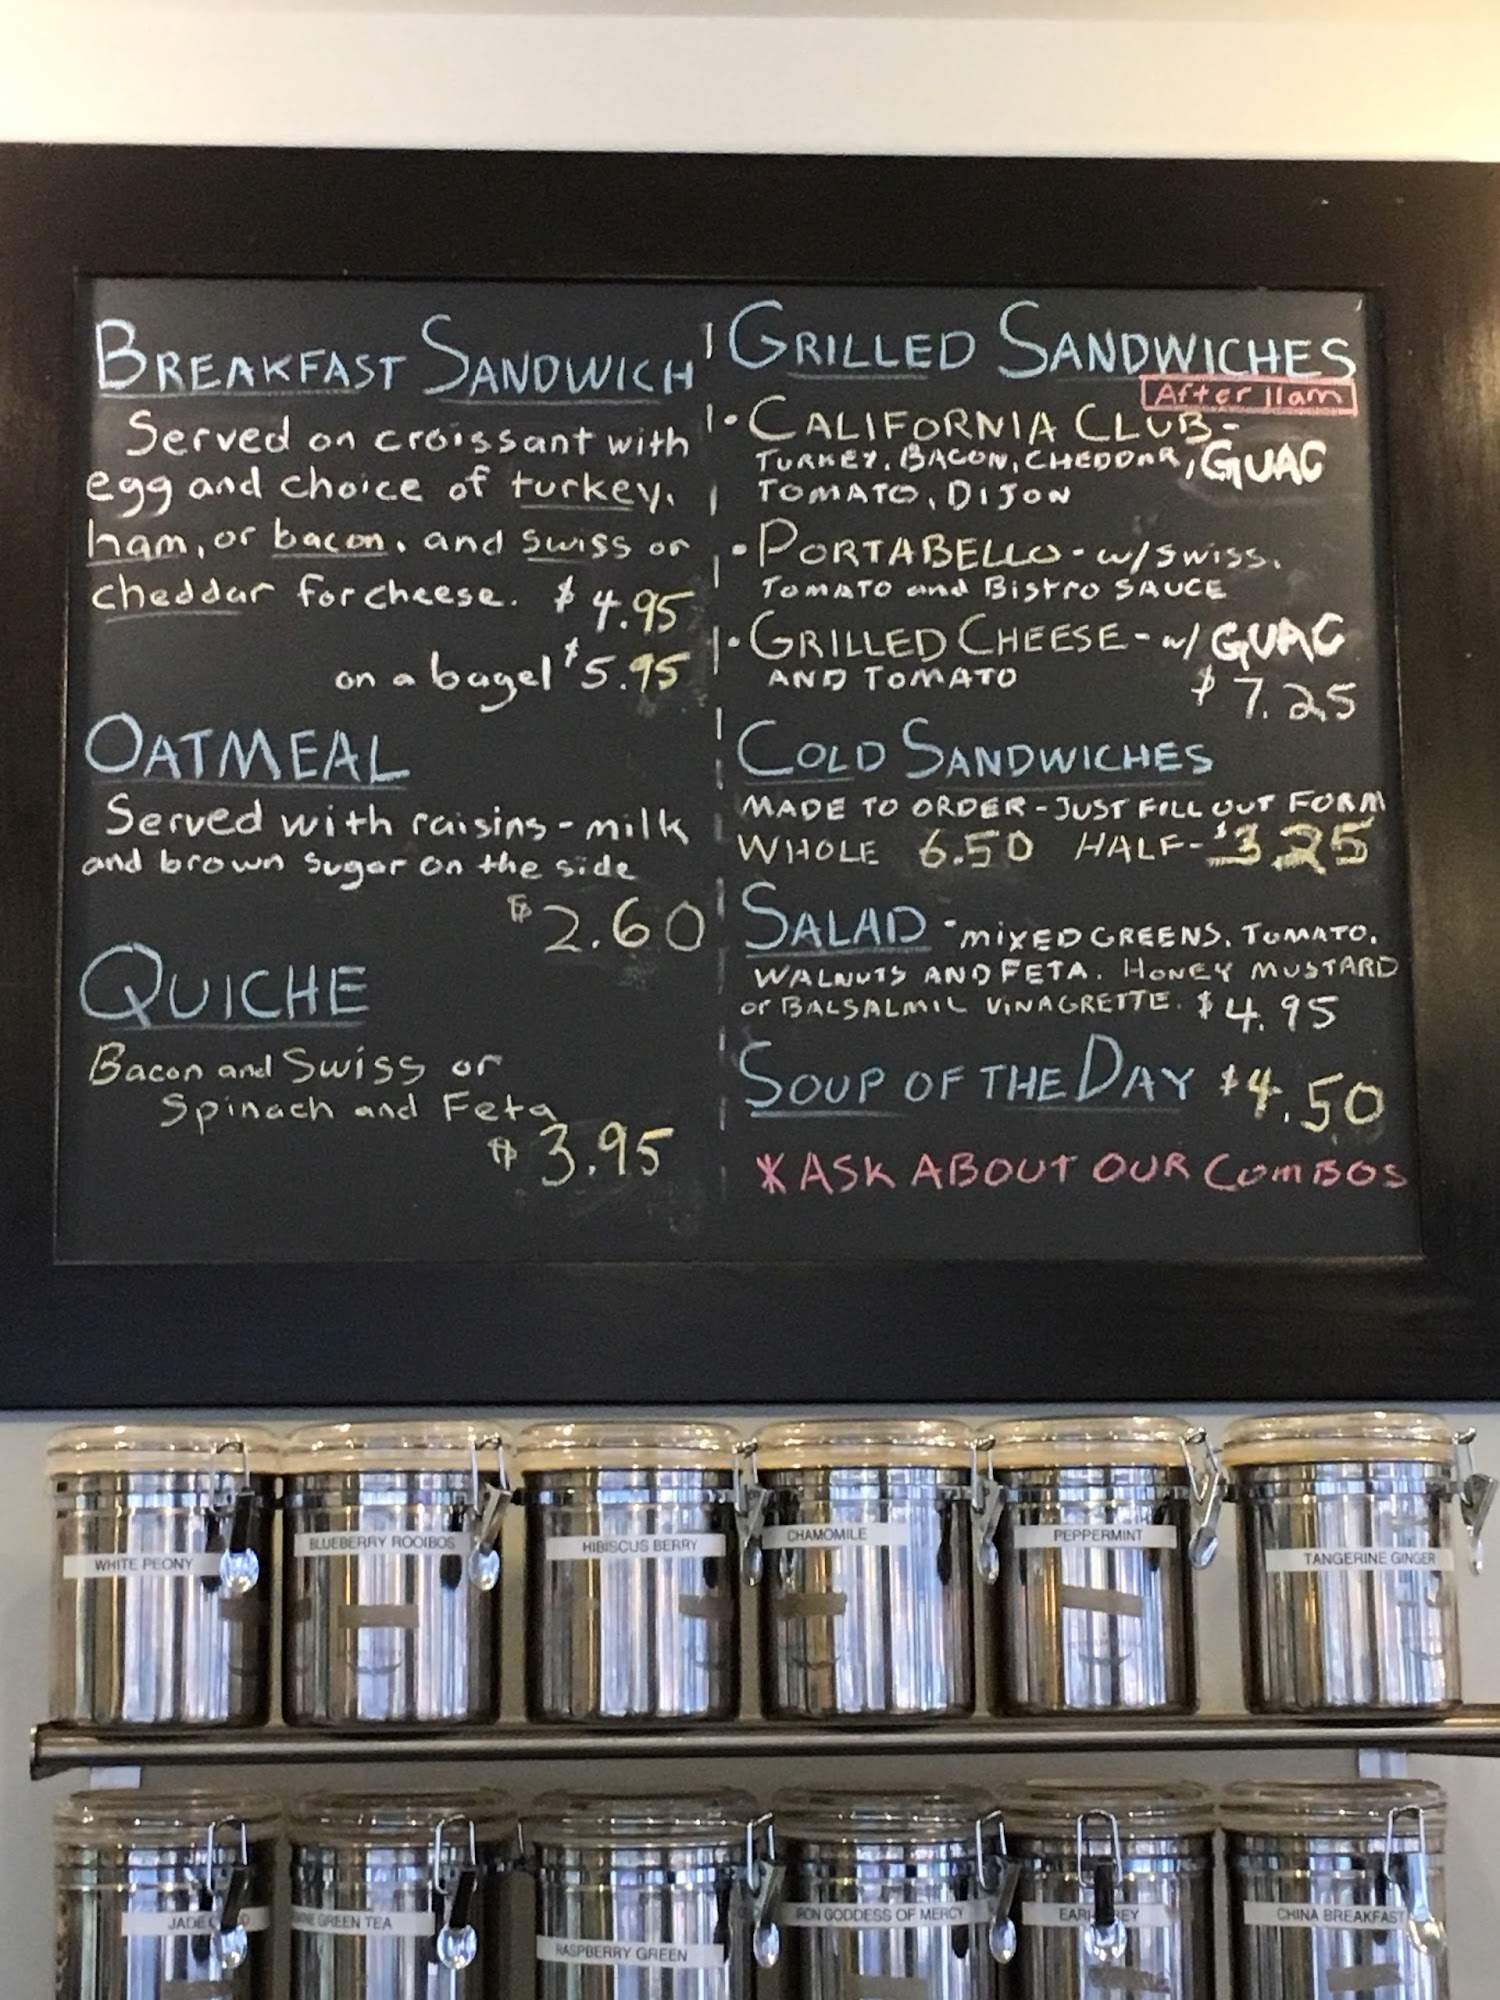 BREAKFAST SANDWICH
Served on croissant with
egg and choice of turkey,
ham, or bacon, and swiss or
cheddar for cheese. $4.95
on a bagel $5.95
OATMEAL
Served with raisins - milk
and brown sugar on the side
$2.60
QUICHE
Bacon and Swiss or
Spinach and Feta
$3.95
GRILLED SANDWICHES
After 11am
• CALIFORNIA CLUB -
TURKEY, BACON, CHEDDAR, GUAC
TOMATO, DIJON
• PORTABELLO - w/ SWISS,
TOMATO and BISTRO SAUCE
• GRILLED CHEESE - w/ GUAC
AND TOMATO
$7.25
COLD SANDWICHES
MADE TO ORDER - JUST FILL OUT FORM
WHOLE 6.50 HALF - $3.25
SALAD - MIXED GREENS, TOMATO,
WALNUTS AND FETA. HONEY MUSTARD
or BALSALMIL VINAGRETTE. $4.95
SOUP OF THE DAY $4.50
* ASK ABOUT OUR COMBOS
WHITE PEONY
BLUEBERRY ROOIBOS
HIBISCUS BERRY
CHAMOMILE
PEPPERMINT
TANGERINE GINGER
JADE
GREEN TEA
RASPBERRY GREEN
IRON GODDESS OF MERCY
EARL GREY
CHINA BREAKFAST